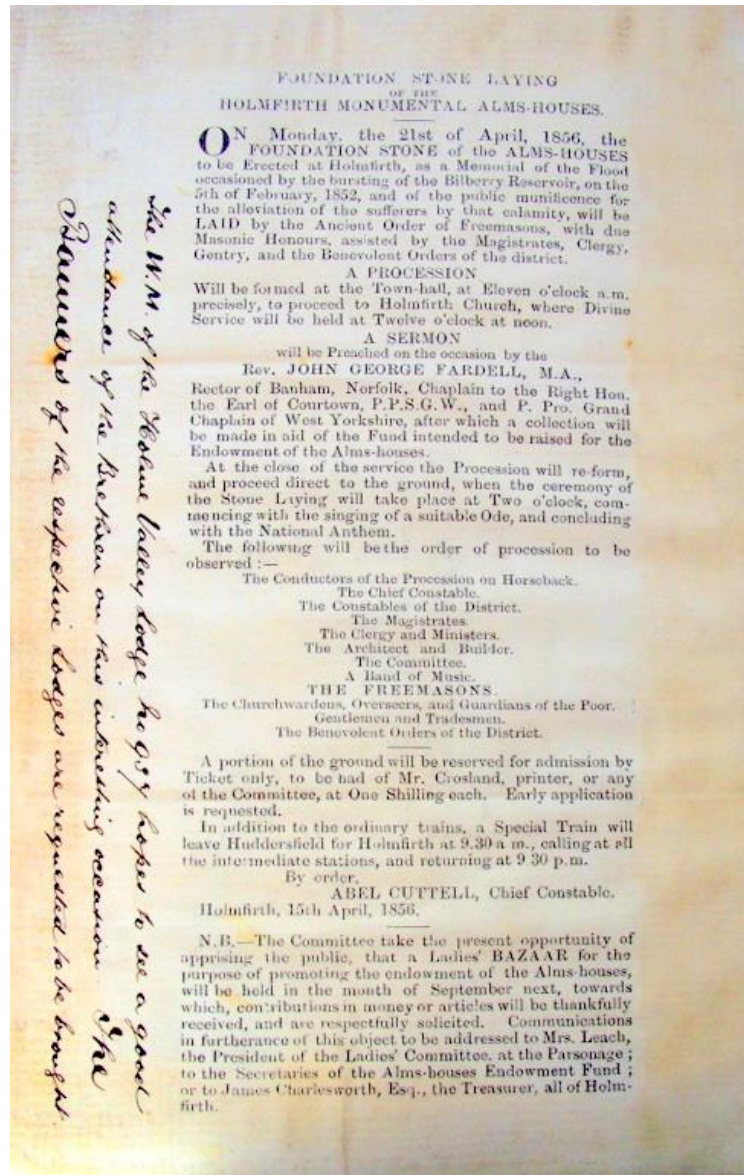 FOUNDATION STONE LAYING
OF THE
HOLMFIRTH MONUMENTAL ALMS-HOUSES.
ON Monday, the 21st of April, 1856, the
FOUNDATION STONE of the ALMS-HOUSES
to be Erected at Holmfirth, as a Memorial of the Flood
occasioned by the bursting of the Bilberry Reservoir, on the
5th of February, 1852, and of the public munificence for
the alleviation of the sufferers by that calamity, will be
LAID by the Ancient Order of Freemasons, with due
Masonic Honours, assisted by the Magistrates, Clergy,
Gentry, and the Benevolent Orders of the district.
A PROCESSION
Will be formed at the Town-hall, at Eleven o'clock a.m.
precisely, to proceed to Holmfirth Church, where Divine
Service will be held at Twelve o'clock at noon.
A SERMON
will be Preached on the occasion by the
Rev. JOHN GEORGE FARDELL, M.A.,
Rector of Banham, Norfolk, Chaplain to the Right Hon.
the Earl of Courtown, P.P.S.G.W., and P. Pro. Grand
Chaplain of West Yorkshire, after which a collection will
be made in aid of the Fund intended to be raised for the
Endowment of the Alms-houses.
At the close of the service the Procession will re-form,
and proceed direct to the ground, when the ceremony of
the Stone Laying will take place at Two o'clock, com-
mencing with the singing of a suitable Ode, and concluding
with the National Anthem.
The following will be the order of procession to be
observed :—
The Conductors of the Procession on Horseback.
The Chief Constable.
The Constables of the District.
The Magistrates.
The Clergy and Ministers.
The Architect and Builder.
The Committee.
A Band of Music.
THE FREEMASONS.
The Churchwardens, Overseers, and Guardians of the Poor.
Gentlemen and Tradesmen.
The Benevolent Orders of the District.
A portion of the ground will be reserved for admission by
Ticket only, to be had of Mr. Crosland, printer, or any
of the Committee, at One Shilling each. Early application
is requested.
In addition to the ordinary trains, a Special Train will
leave Huddersfield for Holmfirth at 9.30 a m., calling at all
the intermediate stations, and returning at 9 30 p.m.
By order,
ABEL CUTTELL, Chief Constable.
Holmfirth, 15th April, 1856.
N.B.—The Committee take the present opportunity of
apprising the public, that a Ladies' BAZAAR for the
purpose of promoting the endowment of the Alms-houses,
will be held in the month of September next, towards
which, contributions in money or articles will be thankfully
received, and are respectfully solicited. Communications
in furtherance of this object to be addressed to Mrs. Leach,
the President of the Ladies' Committee, at the Parsonage ;
to the Secretaries of the Alms-houses Endowment Fund ;
or to James Charlesworth, Esq., the Treasurer, all of Holm-
firth.
The W.M. of the Holme Valley Lodge No 937 hopes to see a good
attendance of the Brethren on this interesting occasion. The
Banners of the respective Lodges are requested to be brought.